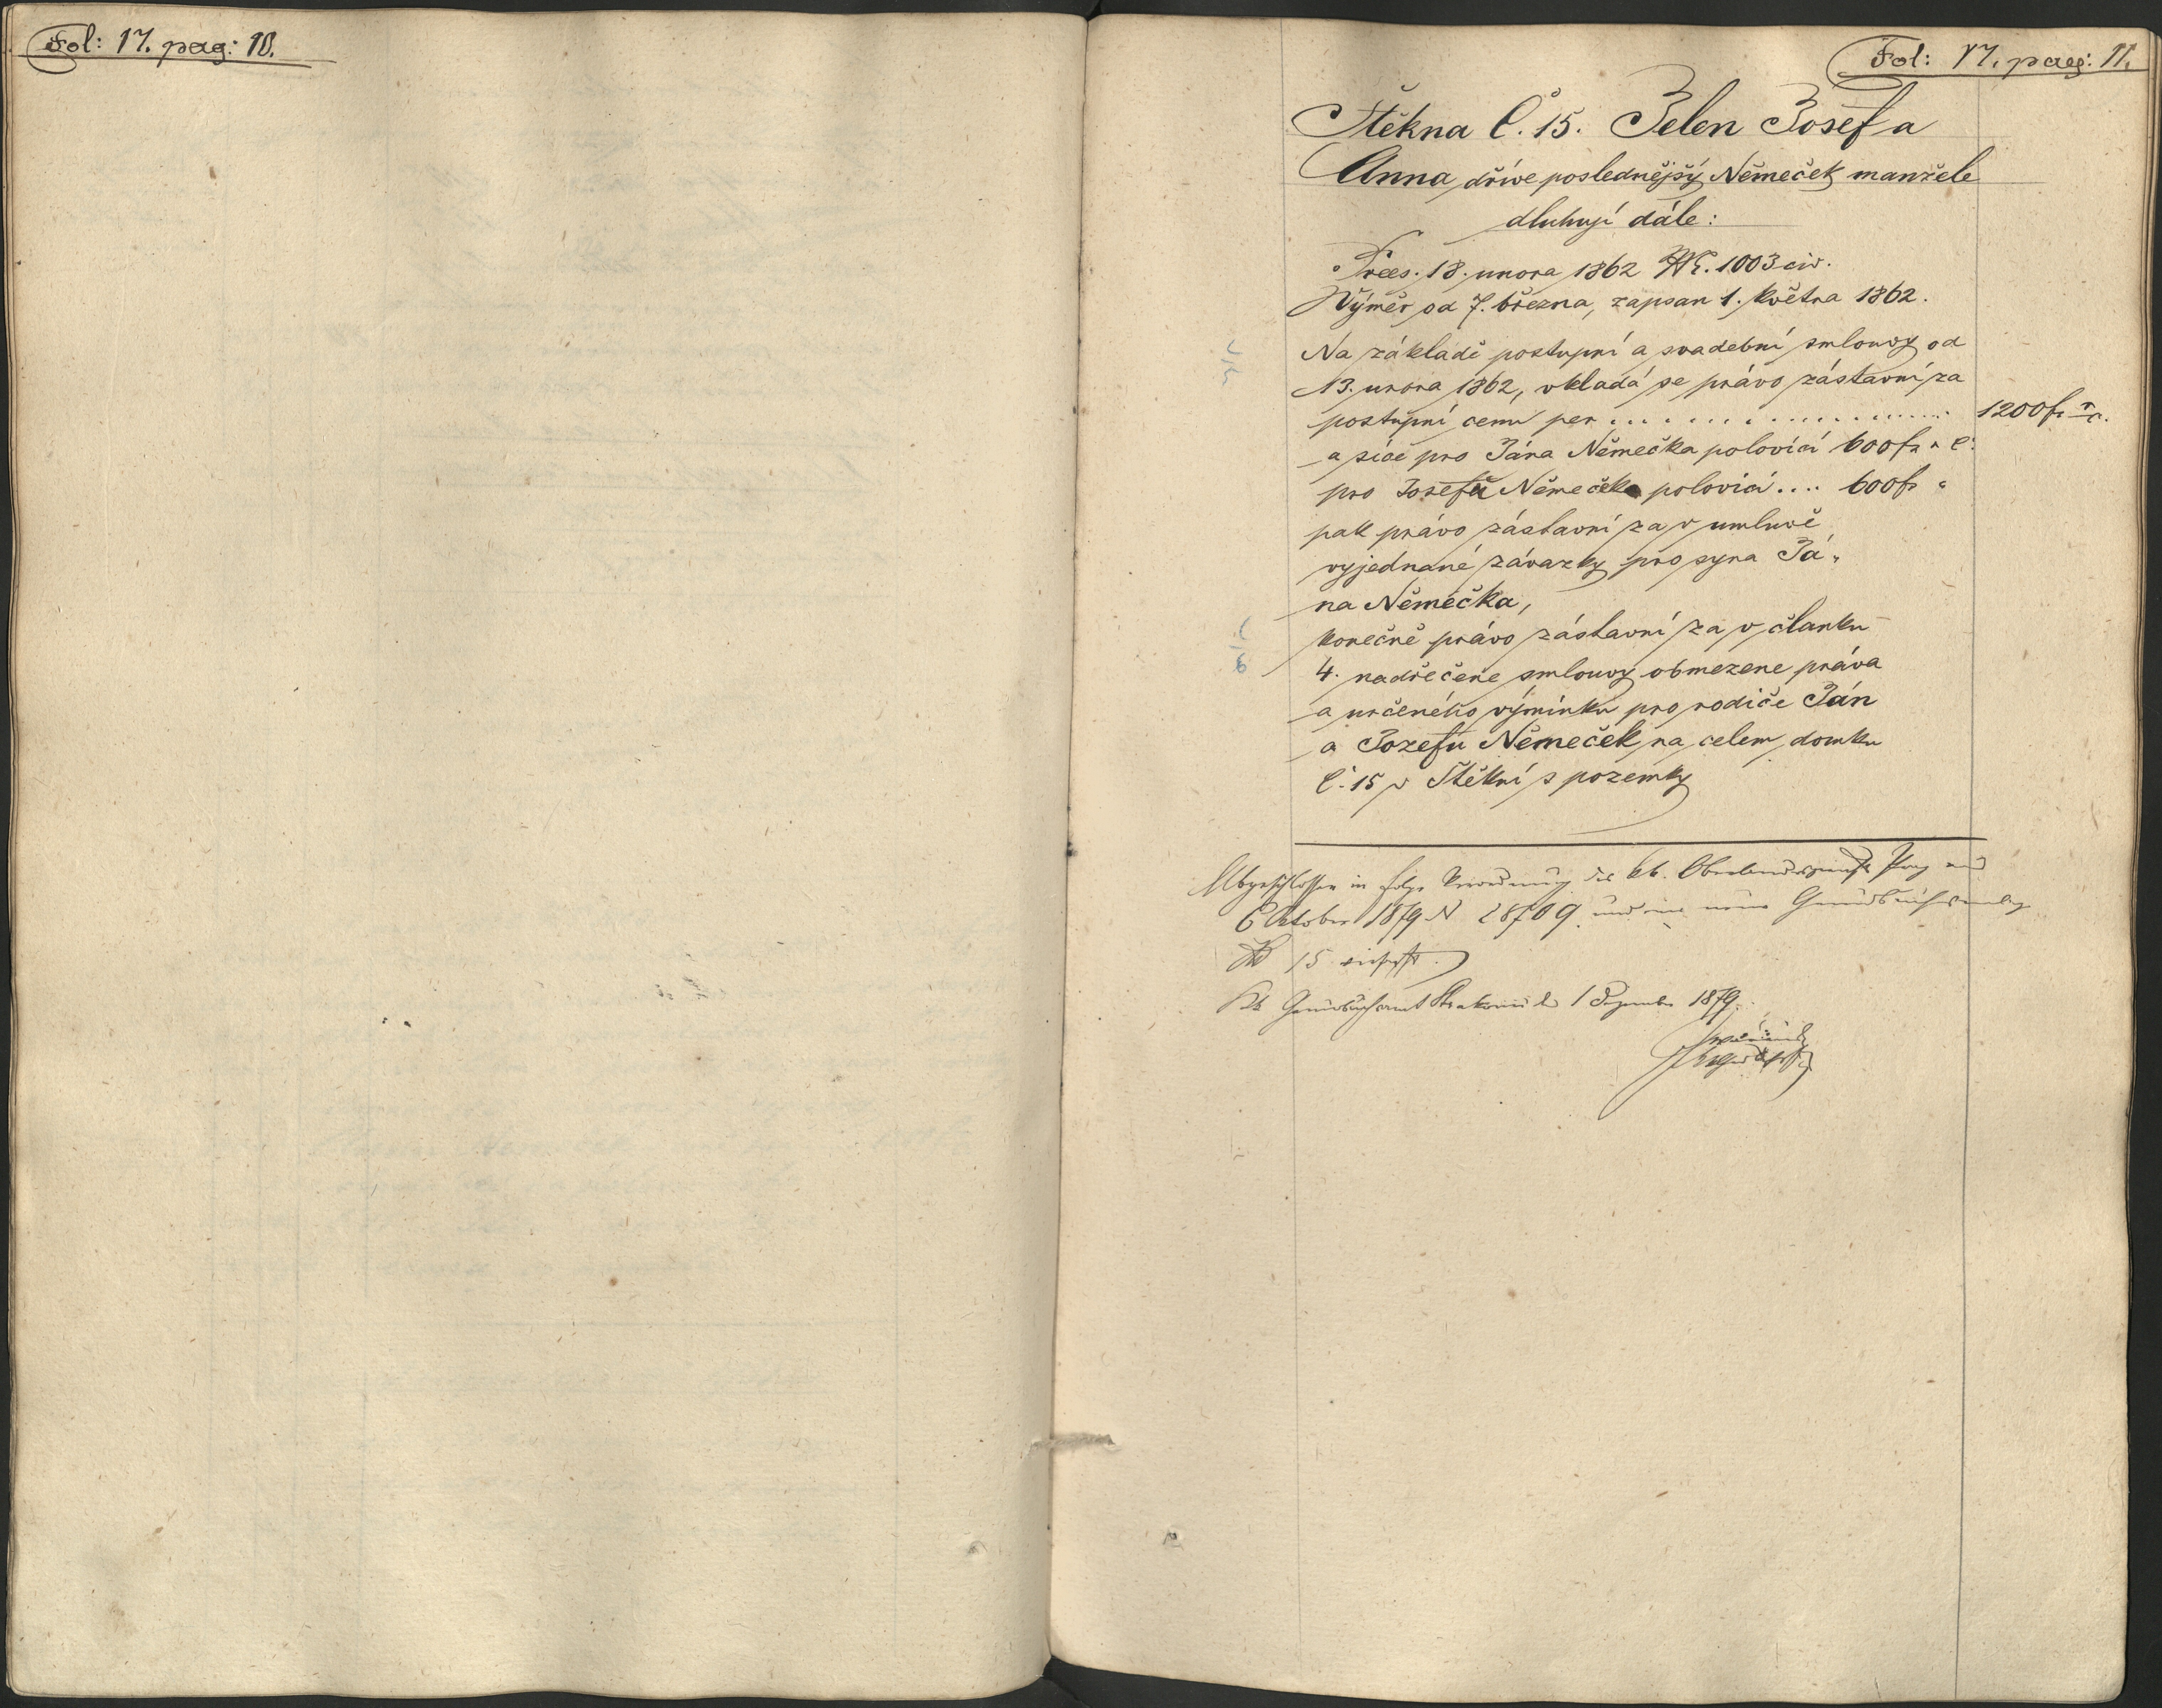 Fol: 17. pag: 10.
Fol: 17. pag: 11.
Štěkna č. 15. Jelen Josef a
Anna dříve poslednějšý Němeček manžele
dluhují dále:
Prees. 18. unora 1862 Nr. 1003 civ.
Výměr od 7. března, zapsan 1. května 1862.
Na základě postupní a svadební smlouvy od
13. unora 1862, vkladá se právo zástavní za
postupní cenu per .................... 1200 f. r. c.
a sice pro Jána Němečka polovicí 600 fr " č.
pro Josefu Němeček polovicí .... 600 fr "
pak právo zástavní za v umluvě
vyjednané závazky pro syna Já-
na Němečka,
konečně právo zástavní za v članku
4. nadřečene smlouvy obmezene práva
a určeného výminku pro rodiče Ján
a Jozefu Němeček na celem domku
č. 15 v Štěkni s pozemky
Abgeschlossen in folge Verordnung des kk. Oberlandesgerichts Prag
6 Oktober 1879 N 28709 und neue
15
Kk Grundbuchsamt Strakonic 1 Dezember 1879.